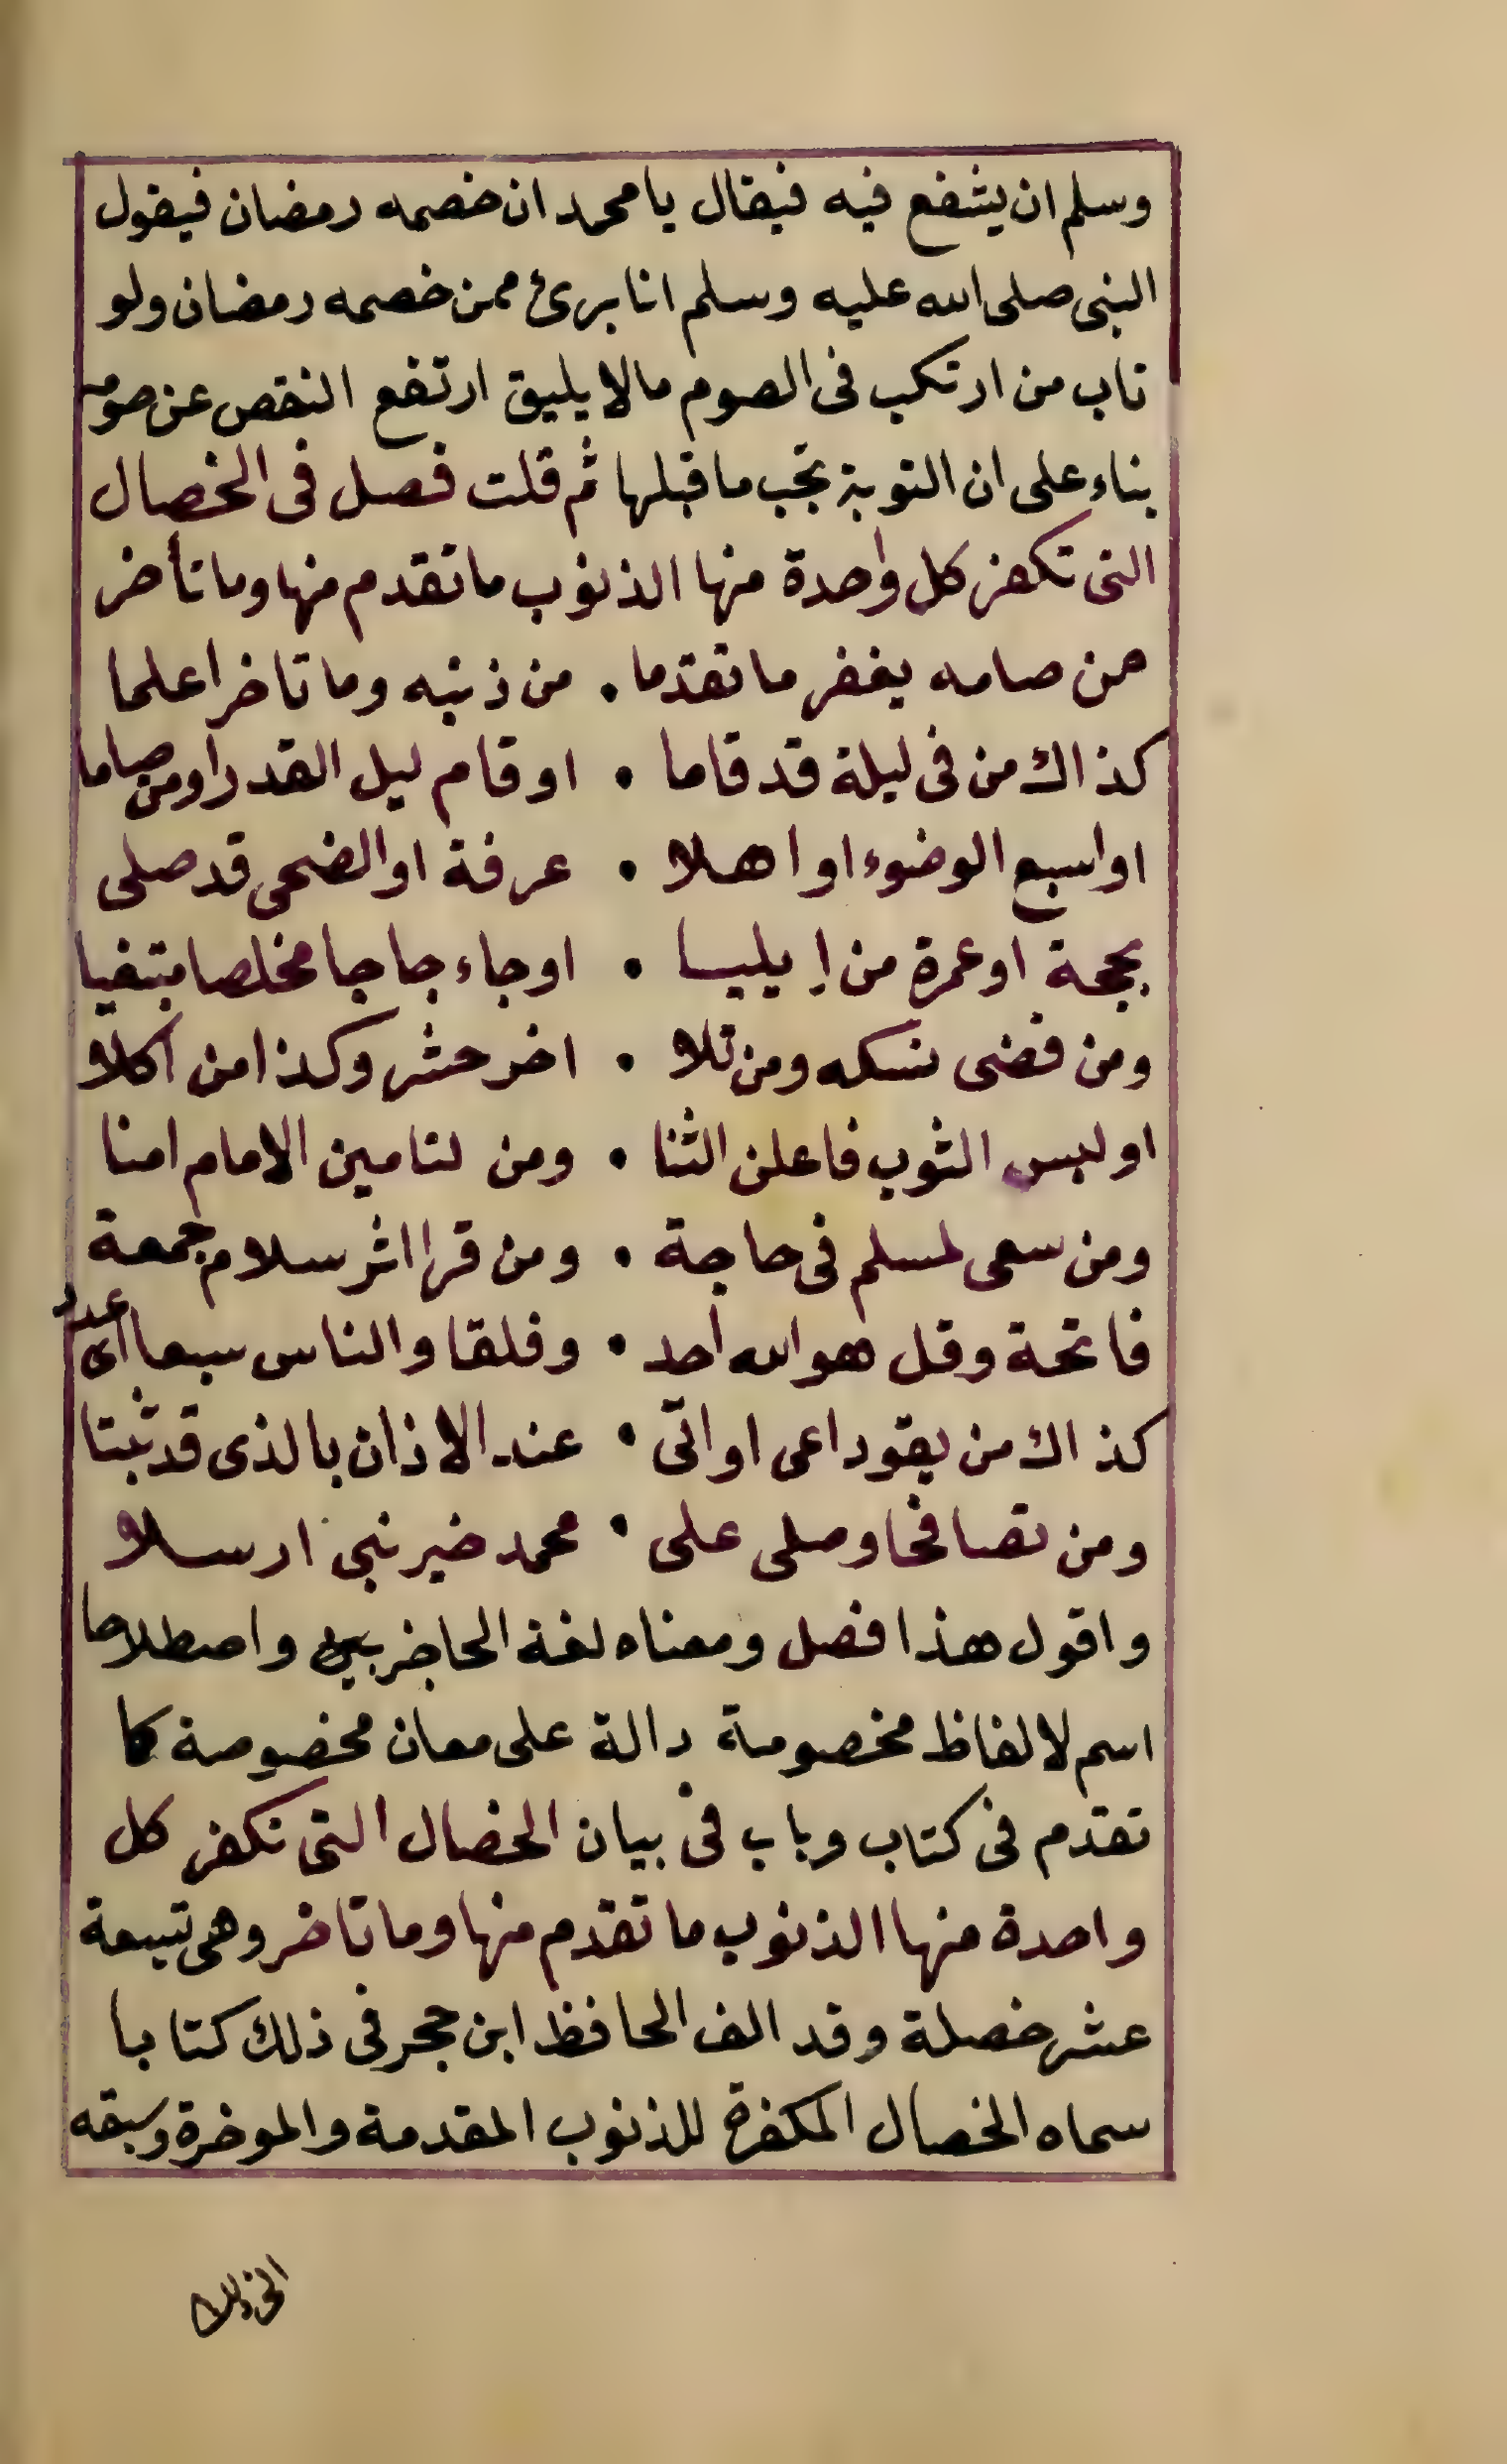 وسلم ان يشفع فيه فيقال يا محمد ان خصمه رمضان فيقول
النبى صلى الله عليه وسلم انا برئ ممن خصمه رمضان ولو
تاب من ارتكب فى الصوم مالا يليق ارتفع النقص عن صومه
بناء على ان التوبة تجب ما قبلها ثم قلت فصل فى الخصال
التى تكفر كل واحدة منها الذنوب ما تقدم منها وما تأخر
من صامه يغفر ما تقدما . من ذنبه وما تاخرا علما
كذاك من فى ليلة قد قاما . او قام ليل القدر اومن صاما
او اسبع الوضوء او اهلا . عرفة او الضحى قد صلى
بحجة او عمرة من إيليا . اوجاء حاجا مخلصا مبتغيا
ومن قضى نسكه ومن تلا . اخر حشر وكذا من اكلا
او لبس الثوب فاعلن الثنا . ومن لتامين الامام امنا
ومن سعى لمسلم فى حاجة . ومن قرا اثر سلام جمعة
فاتحة وقل هو الله احد . وفلقا والناس سبعا اى عدد
كذاك من يقود اعمى او اتى . عند الاذان بالذى قد ثبتا
ومن تصافحا وصلى على . محمد خير نبى ارسلا
واقول هذا فصل ومعناه لغة الحاجز بين واصطلاحا
اسم لالفاظ مخصوصة دالة على معان مخصوصة كما
تقدم فى كتاب وباب فى بيان الخصال التى تكفر كل
واحدة منها الذنوب ما تقدم منها وما تاخر وهى تسعة
عشر خصلة وقد الف الحافظ ابن حجر فى ذلك كتابا
سماه الخصال المكفرة للذنوب المقدمة والموخرة وسبقه
الى ذلك